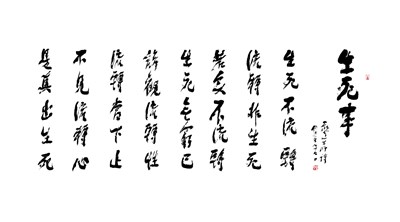 生死事
生死不流轉
流轉非生死
若不流轉
生死無窮已
諦觀流轉性
流轉當下止
不見流轉心
是真出生死